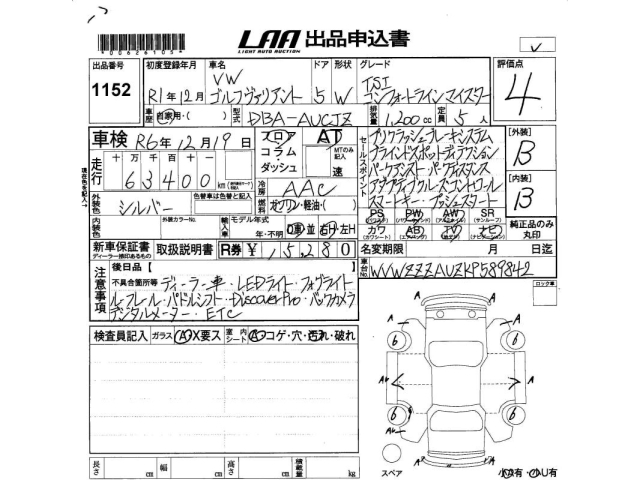 *00626105*
LAA 出品申込書
LIGHT AUTO AUCTION
出品番号 初度登録年月 車名 ドア 形状 グレード 評価点
1152 R1年12月 VW ゴルフヴァリアント 5 W TSI コンフォートラインマイスター 4
車歴 自家用・( ) 型式 DBA-AUCJZ 排気量 1,200cc 定員 5人
車検 R6年12月19日 フロア コラム ダッシュ AT MTのみ記入 速
セールスポイント
プリクラッシュブレーキシステム
ブラインドスポットディテクション
パークアシスト パークディスタンス
アダプティブクルーズコントロール
スマートキー プッシュスタート
[外装] B
[内装] B
走行 十 万 千 百 十
63400 km
現在色を記入→
外装色 シルバー 色替車は色替と記入
冷房 AAC
燃料 ガソリン・軽油・( )
PS AW SR
(サンルーフ)
カワ AB TV ナビ
純正品のみ丸印
内装色 外装カラーNo. 輸入車 モデル年式 年・不明 D車 並 右H・左H
新車保証書 取扱説明書 R券 ¥15,280
ディーラー捺印あるもの
名変期限 月 日迄
車台No. WVWZZZAUZKP589842
ロック車
注意事項
後日品 [ ]
不具合箇所等 ディーラー車・LEDライト・フォグライト
ルーフレール・パドルシフト・DiscoverPro・バックカメラ
デジタルメーター・ETC
検査員記入 ガラス A X要ス 室内シート A コゲ・穴・汚れ・破れ
A A
b b
A A
b b
A A
スペア
小傷有・小凹有
長さ cm 幅 cm 高さ cm 積載量 kg